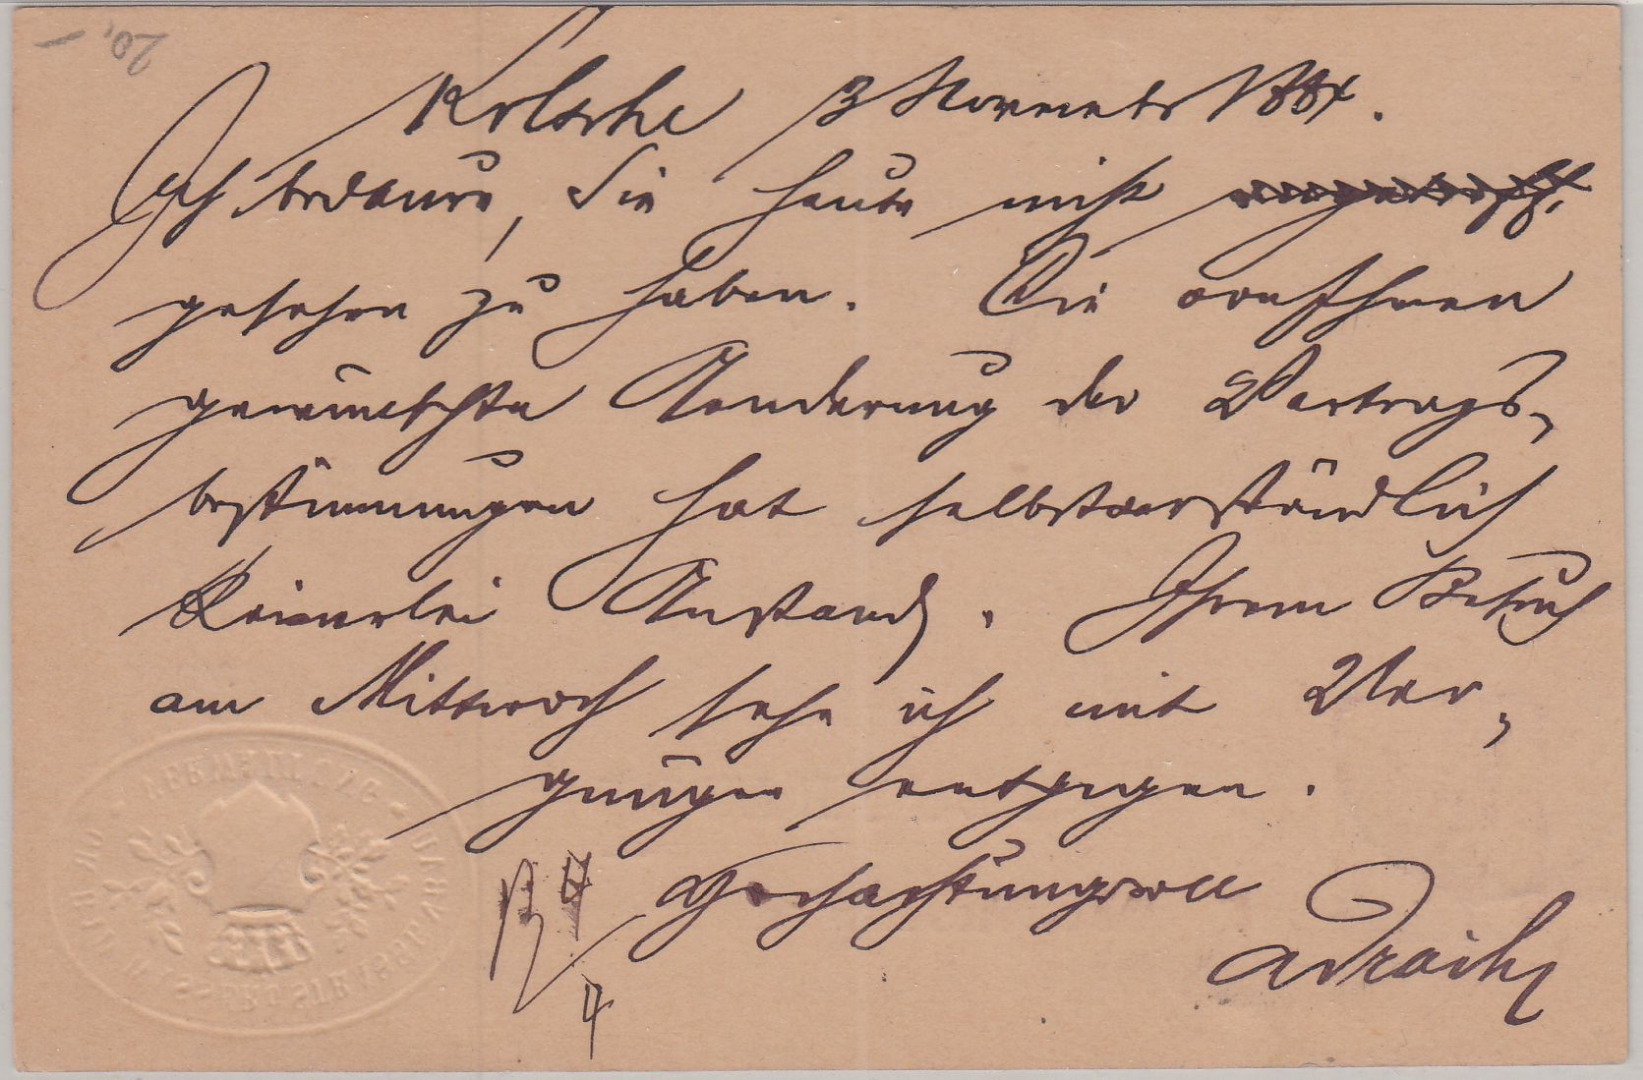 20,–
3 November 188
Ich bedaure, Sie heute nicht
gesehen zu haben. Die von Ihnen
gewünschte Aenderung der Vertrags-
bestimmungen hat selbstverständlich
keinerlei Anstand. Ihrem Besuch
am Mittwoch sehe ich mit Ver-
gnügen entgegen.
Hochachtungsvoll